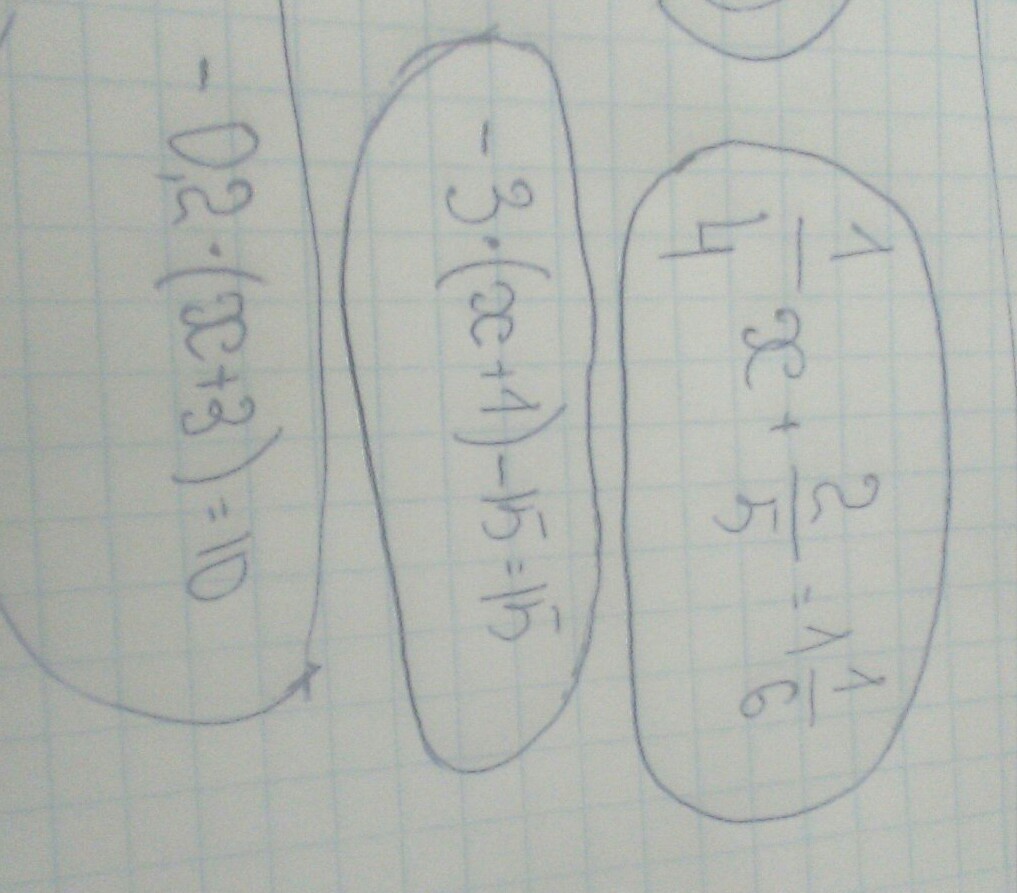 1/4 x + 2/5 = 1 1/6
-3·(x+1)-15=15
-0,2·(x+3)=10